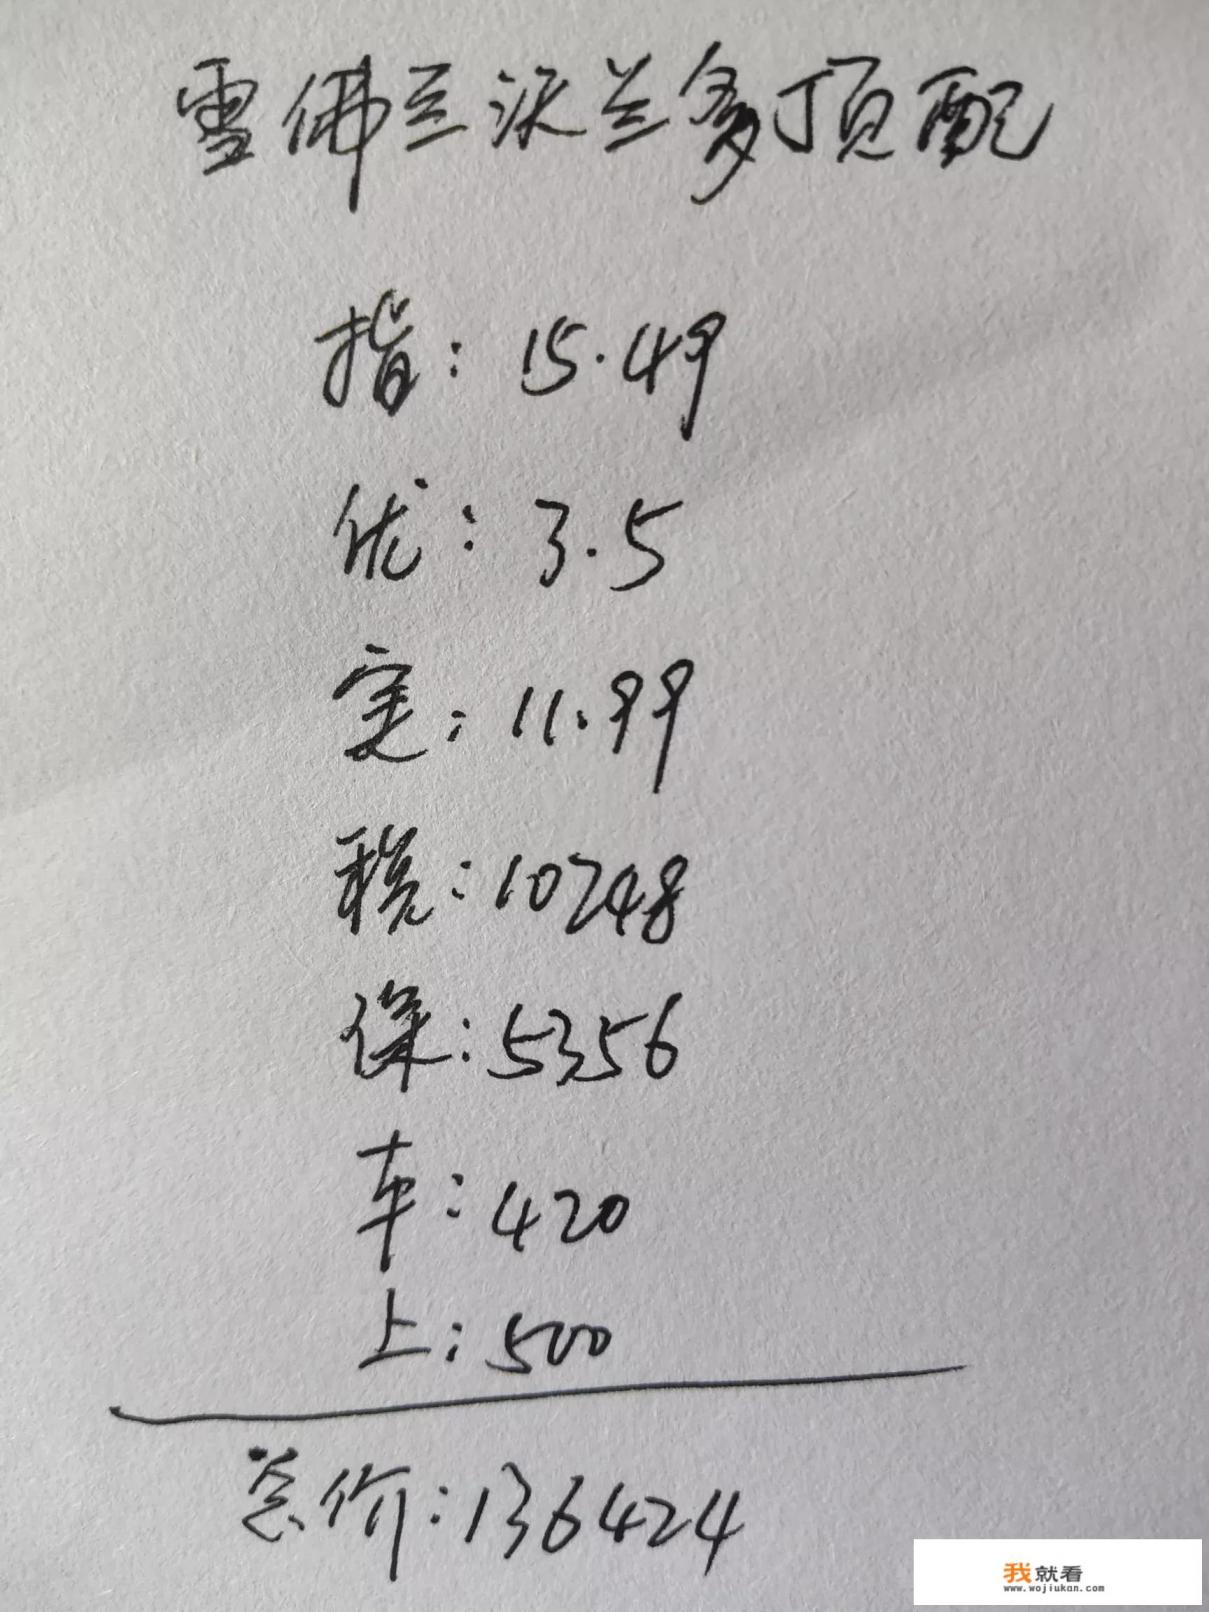 雪佛兰沃兰多顶配
指：15.49
优：3.5
实：11.99
税：10248
保：5356
车：420
上：500
总价：136424
我就看
www.wojiukan.com